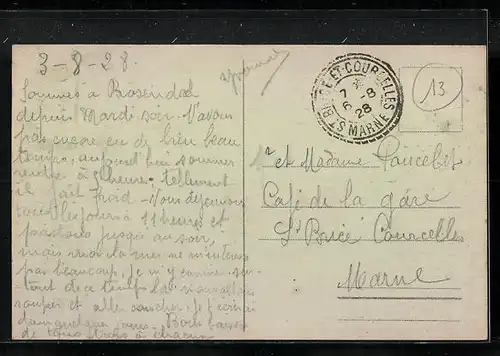 3-8-28
Yvonne
Sommes à Rosendael
depuis Mardi soir. N'avons
pas encore eu de bien beau
temps, aujourd'hui sommes
rentré à heure tellement
il fait froid. Nous déjeunons
tous les jours à 11 heures et
jusqu'au soir,
mais moi la mer ne m'intéresse
pas beaucoup, je m'y ennuie sur-
tout de ce temps là
souper et aller coucher. Je t'écrirai
dans quelques jours. Bons baisers
de tous trois à chacun
ST BRICE-ET-COURCELLES
*
7
6-8
28
MARNE
13
Mr et Madame Poncelet
Café de la gare
St Brice Courcelles
Marne